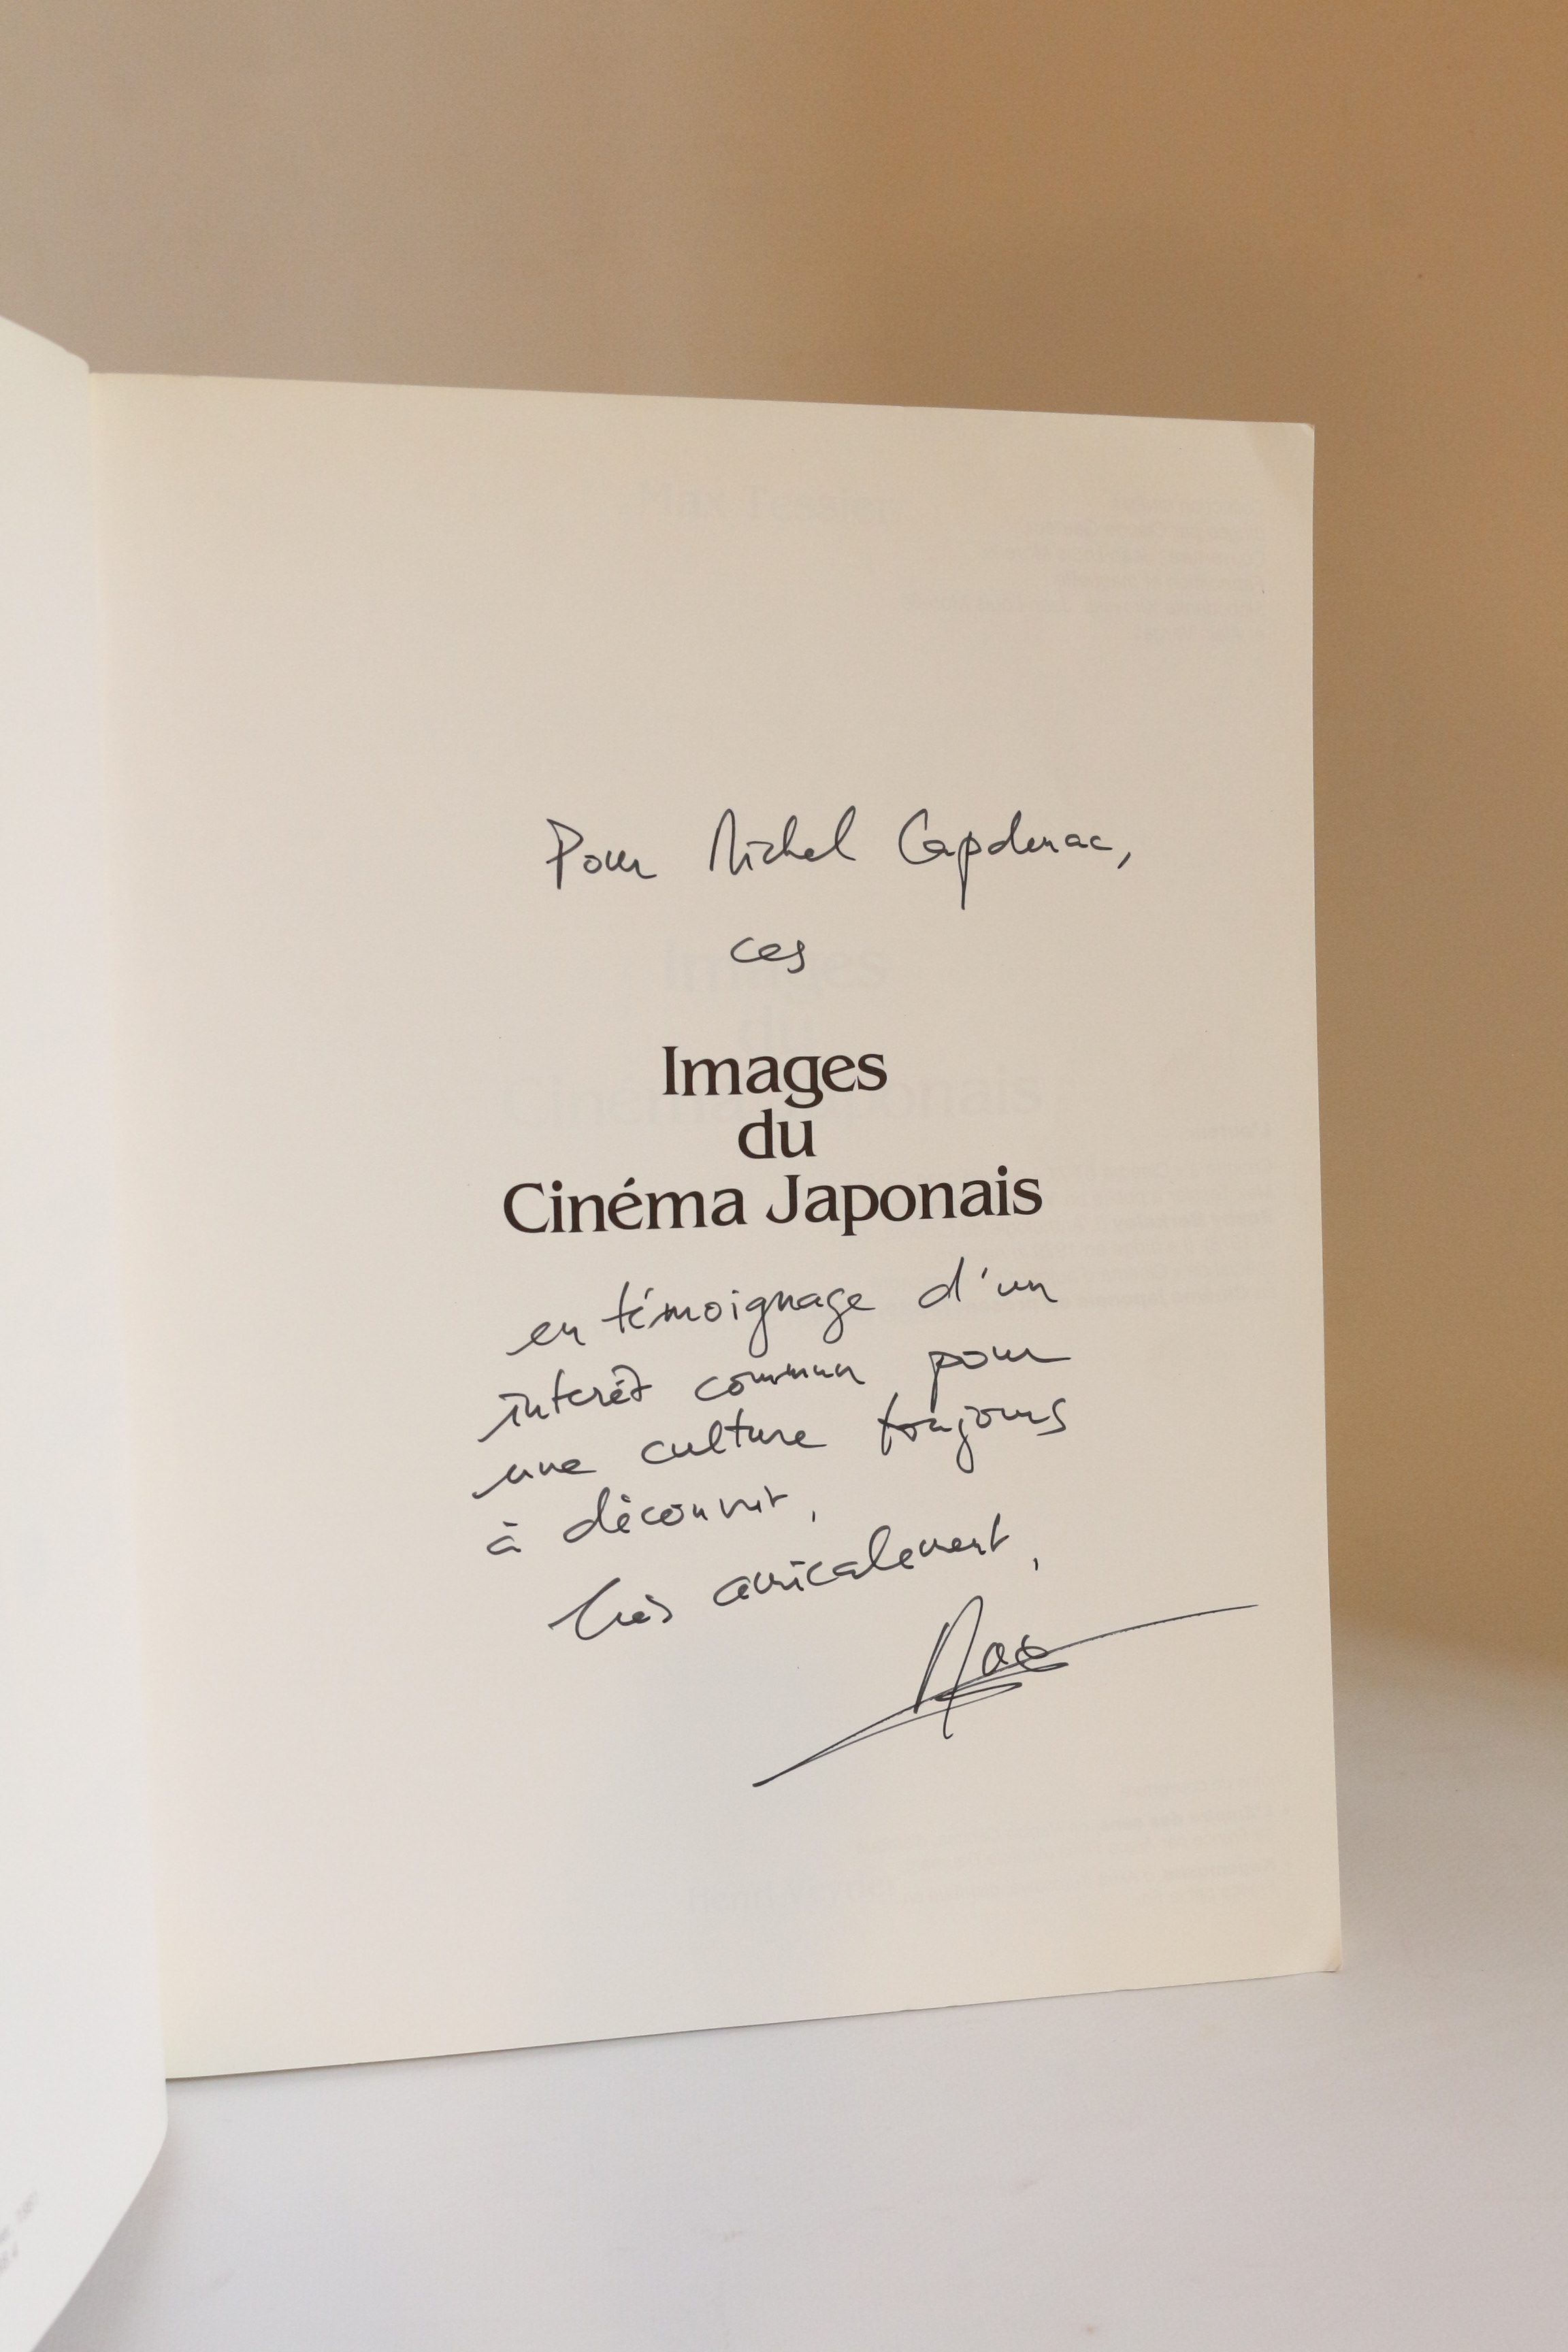 Pour Michel Capdenac,
ces
Images
du
Cinéma Japonais
en témoignage d'un
intérêt commun pour
une culture toujours
à découvrir,
Très amicalement,
Max
Max Tessier